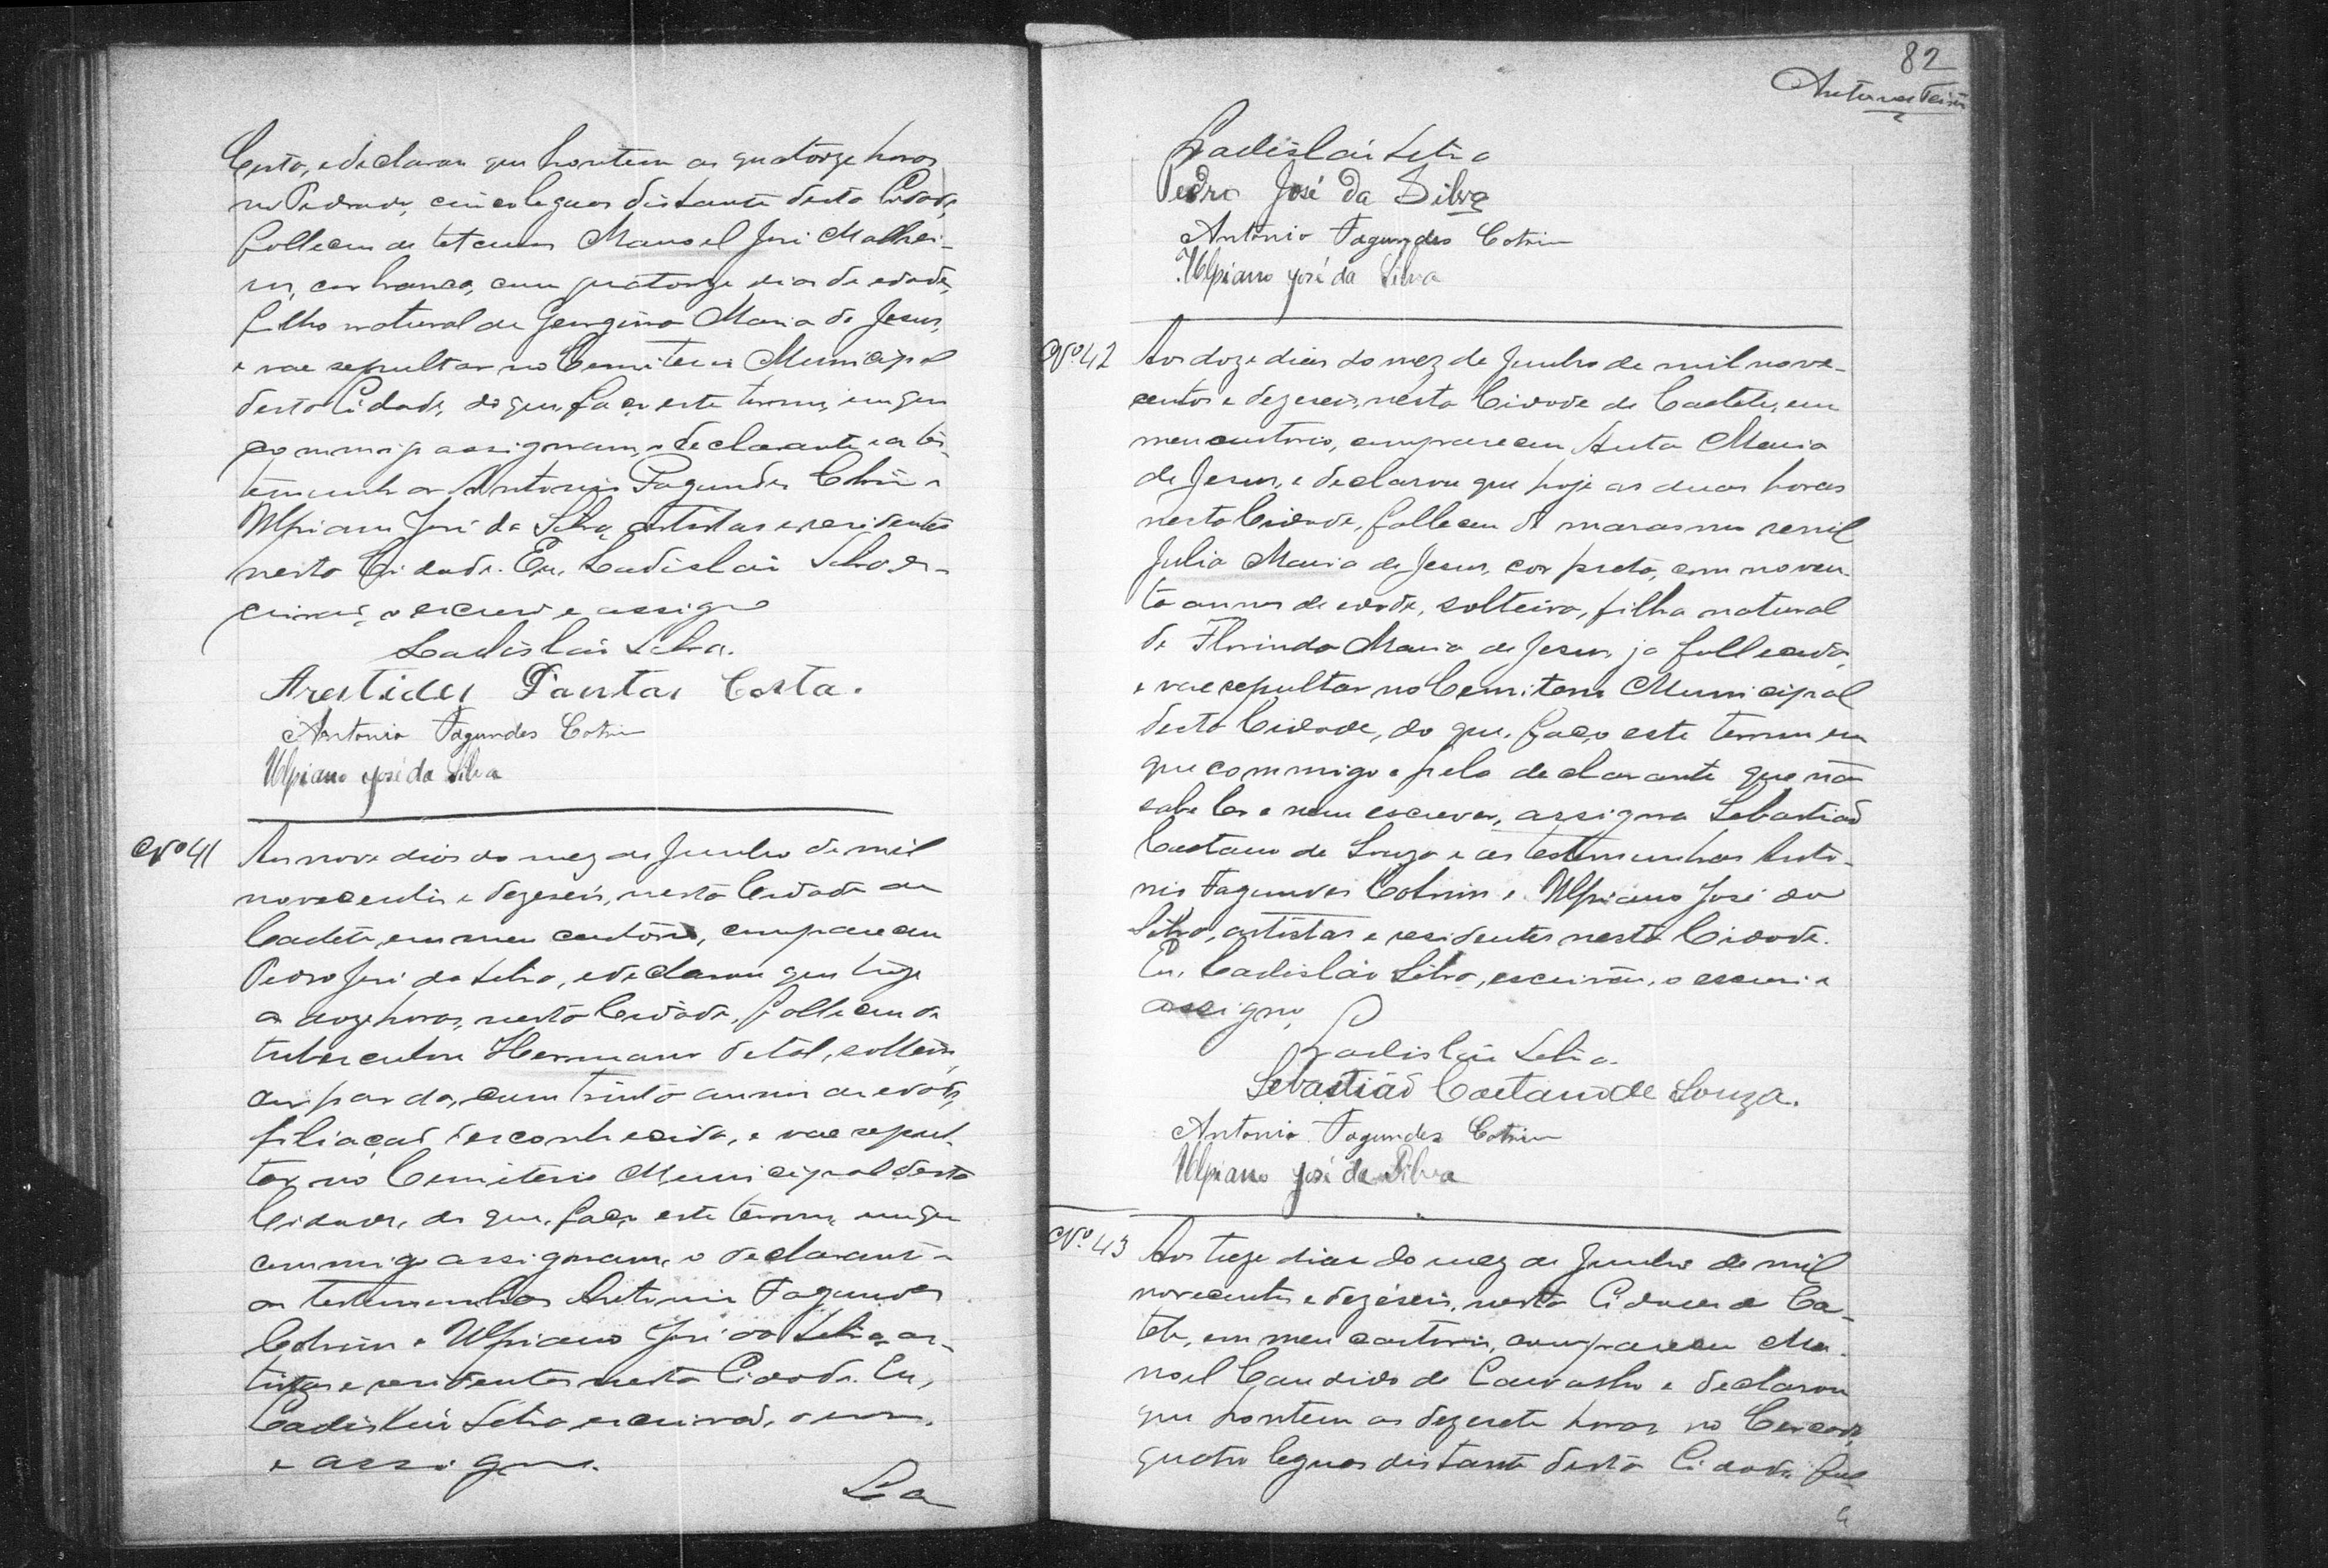 Costa, e declarou que hontem as quatorze horas
no Pedrado, cinco leguas distante desta Cidade,
falleceu de tetano Manoel José Malhei-
ro, cor branca, com quatorze dias de edade,
filho natural de Georgina Maria de Jesus,
e vae sepultar no Cemiterio Municipal
desta Cidade, do que, faço este termo, em que
commigo assignam, o declarante e as tes-
temunhas Antonio Fagundes Cotrim e
Ulpiano José da Silva, artistas e residentes
nesta Cidade. Eu, Ladislau Silva es-
crivaõ, o escrevi e assigno
Ladislau Silva.
Arestides Dantas Costa.
Antonio Fagundes Cotrim
Ulpiano José da Silva
Nº 41
Aos nove dias do mez de Junho de mil
novecentos e dezeseis, nesta Cidade de
Caeteté, em meu cartorio, compareceu
Pedro José da Silva, e declarou que hoje
as doze horas, nesta Cidade, falleceu de
tuberculose Hermano de tal, solteiro,
cor parda, com trinta annos de edade,
filiaçaõ desconhecida, e vae sepul-
tar no Cemiterio Municipal desta
Cidade, do que, faço este termo, em que
commigo assignam, o declarante e
as testemunhas Antonio Fagundes
Cotrim e Ulpiano José da Silva, ar-
tistas e residentes nesta Cidade. Eu,
Ladislau Silva, escrivaõ, o escrevi
e assigno.
La
82
Ladislau Silva
Pedro José da Silva
Antonio Fagundes Cotrim
Ulpiano José da Silva
Nº 42
Aos doze dias do mez de Junho de mil nove-
centos e dezeseis, nesta Cidade de Caeteté, em
meu cartorio, compareceu Anta Maria
de Jesus, e declarou que hoje as duas horas
nesta Cidade, falleceu de marasmo senil
Julia Maria de Jesus, cor preta, com noven-
ta annos de edade, solteira, filha natural
de Florinda Maria de Jesus, ja fallecida,
e vae sepultar no Cemiterio Municipal
desta Cidade, do que, faço este termo em
que commigo e pelo declarante que não
sabe ler e nem escrever, assigna Sebastiaõ
Caetano de Souza e as testemunhas Anto-
nio Fagundes Cotrim e Ulpiano José da
Silva, artistas e residentes nesta Cidade.
Eu, Ladislau Silva, escrivão, o escrevi e
assigno,
Ladislau Silva.
Sebastiaõ Caetano de Souza.
Antonio Fagundes Cotrim
Ulpiano José da Silva
Nº 43
Aos treze dias do mez de Junho de mil
novecentos e dezeseis, nesta Cidade de Cae-
teté, em meu cartorio, compareceu Ma-
noel Candido de Carvalho e declarou
que hontem as dezesete horas no Cercado,
quatro leguas distante desta Cidade fal-